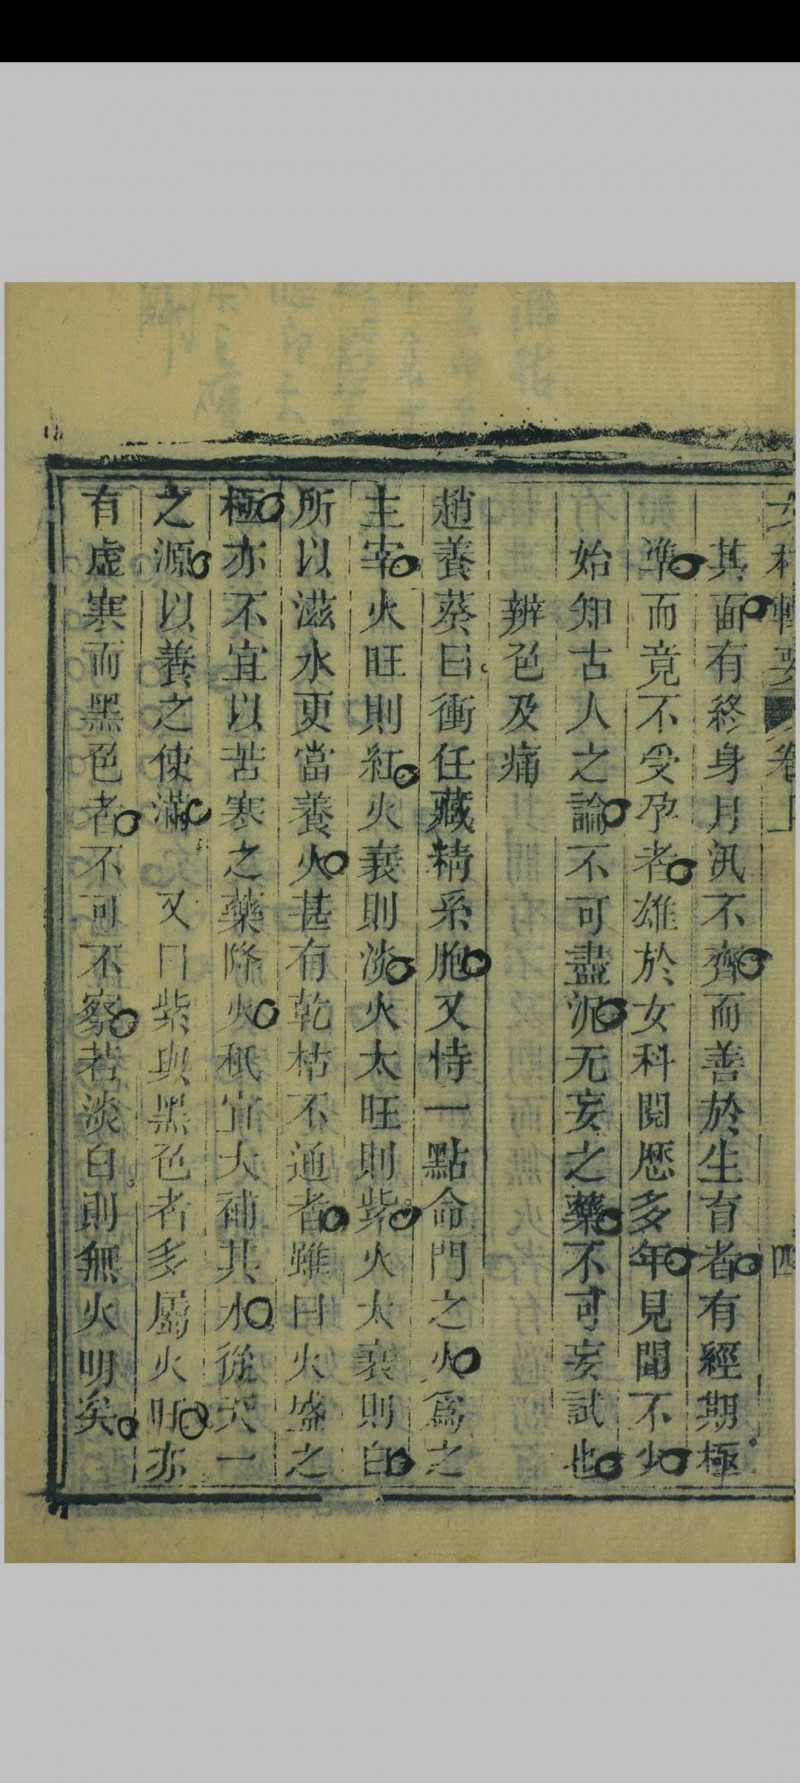 女科輯要 卷上 四
其面有終身月汛不齊而善於生育者有經期極
準而竟不受孕者雄於女科閱歷多年見聞不少
始知古人之論不可盡泥无妄之藥不可妄試也
辨色及痛
趙養葵曰衝任藏精系胞又恃一點命門之火爲之
主宰火旺則紅火衰則淡火太旺則紫火太衰則白
所以滋水更當養火甚有乾枯不通者雖曰火盛之
極亦不宜以苦寒之藥降火秪宜大補其水從天一
之源以養之使滿 又曰紫與黑色者多屬火旺亦
有虛寒而黑色者不可不察若淡白則無火明矣